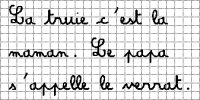 La truie c'est la
maman. Le papa
s'appelle le verrat.